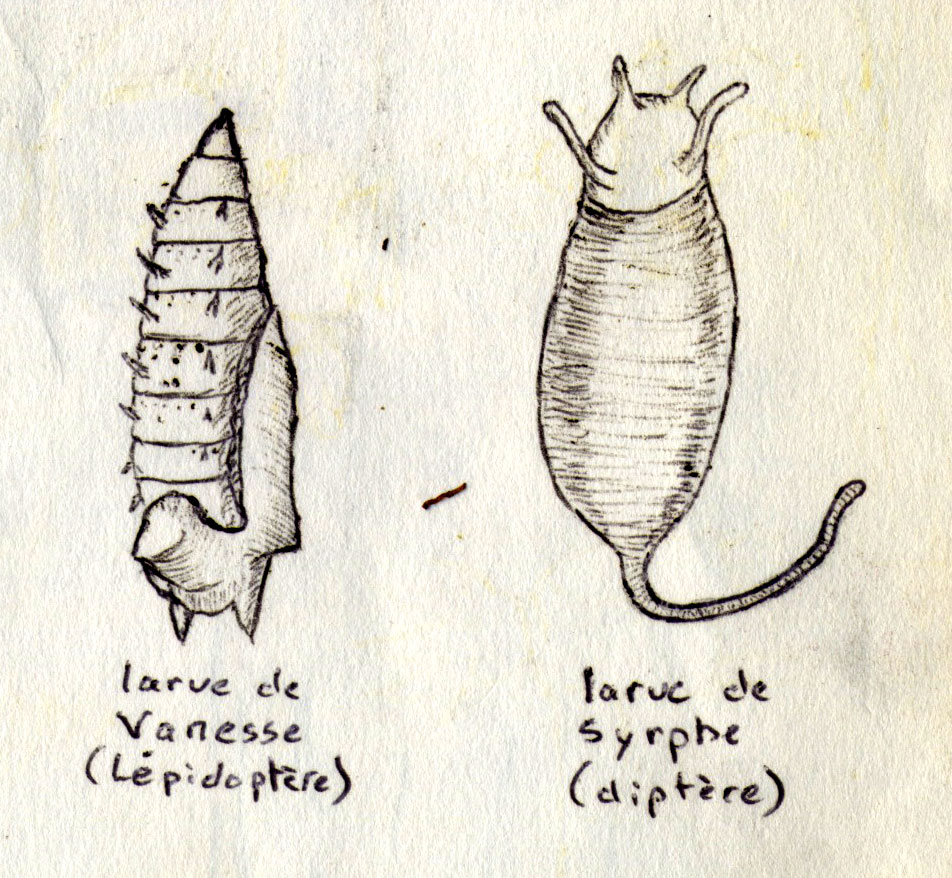 larve de
Vanesse
(Lépidoptère)
larve de
Syrphe
(diptère)